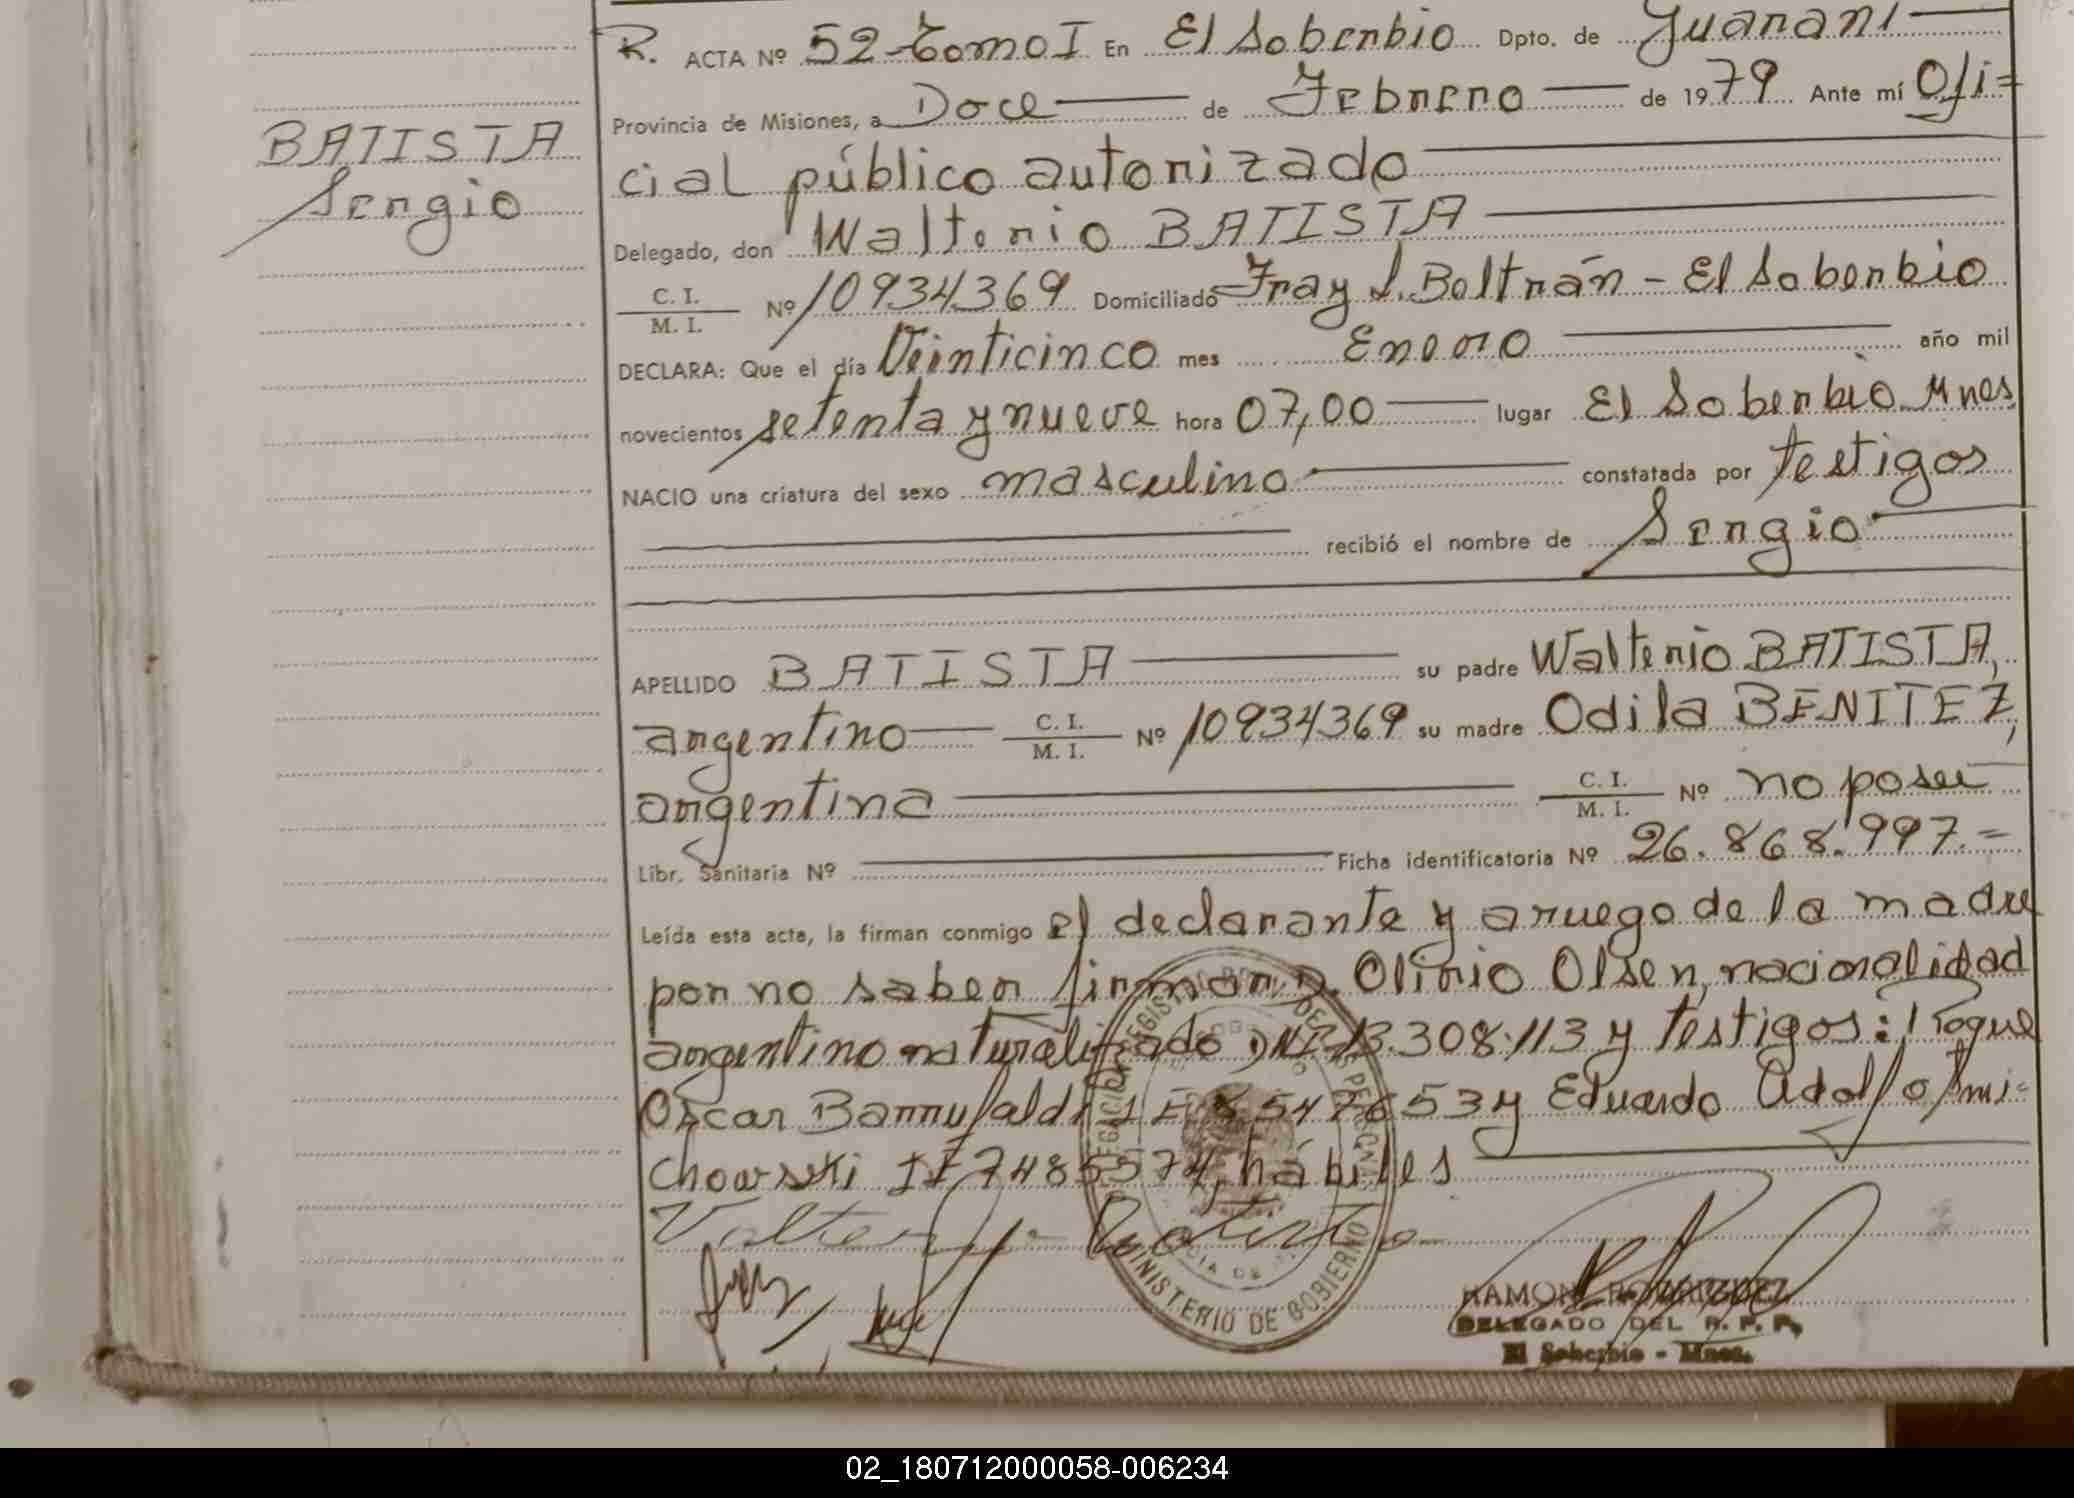 BATISTA
Sergio
R. ACTA Nº 52-Tomo I En El Soberbio Dpto. de Guaraní
Provincia de Misiones, a Doce de Febrero de 1979 Ante mí Ofi=
cial público autorizado
Delegado, don Walterio BATISTA
C. I. / M. I. Nº 10934369 Domiciliado Fray L. Beltrán - El Soberbio
DECLARA: Que el día Veinticinco mes Enero año mil
novecientos setenta y nueve hora 07,00 lugar El Soberbio Mnes
NACIO una criatura del sexo masculino constatada por testigos
recibió el nombre de Sergio
APELLIDO BATISTA su padre Walterio BATISTA,
argentino C. I. / M. I. Nº 10934369 su madre Odila BENITEZ,
argentina C. I. / M. I. Nº no posee
Libr. Sanitaria Nº Ficha identificatoria Nº 26.868.997.=
Leída esta acta, la firman conmigo el declarante y a ruego de la madre
por no saber firmar D. Olirio Olsen, nacionalidad
argentino naturalizado DNI 13.308.113 y testigos: Roque
Oscar Barrufaldi LE 8547653 y Eduardo Adolfo Smi=
chowski LE 7485574, hábiles
MINISTERIO DE GOBIERNO
RAMON RODRIGUEZ
DELEGADO DEL R. P. P.
El Soberbio - Mnes.
02_180712000058-006234